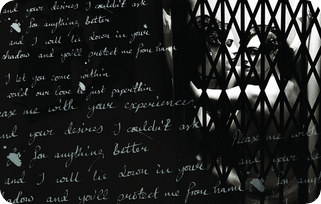 and your desires I couldn't ask
for anything better
and I will lie down in your
shadow and you'll protect me from harm
I let you come within
would our love just paperthin
ease me with your experiences,
and your desires I couldn't ask
Please me with
for anything better
and your
and I will lie down in your
for
adow and you'll protect me from harm
any